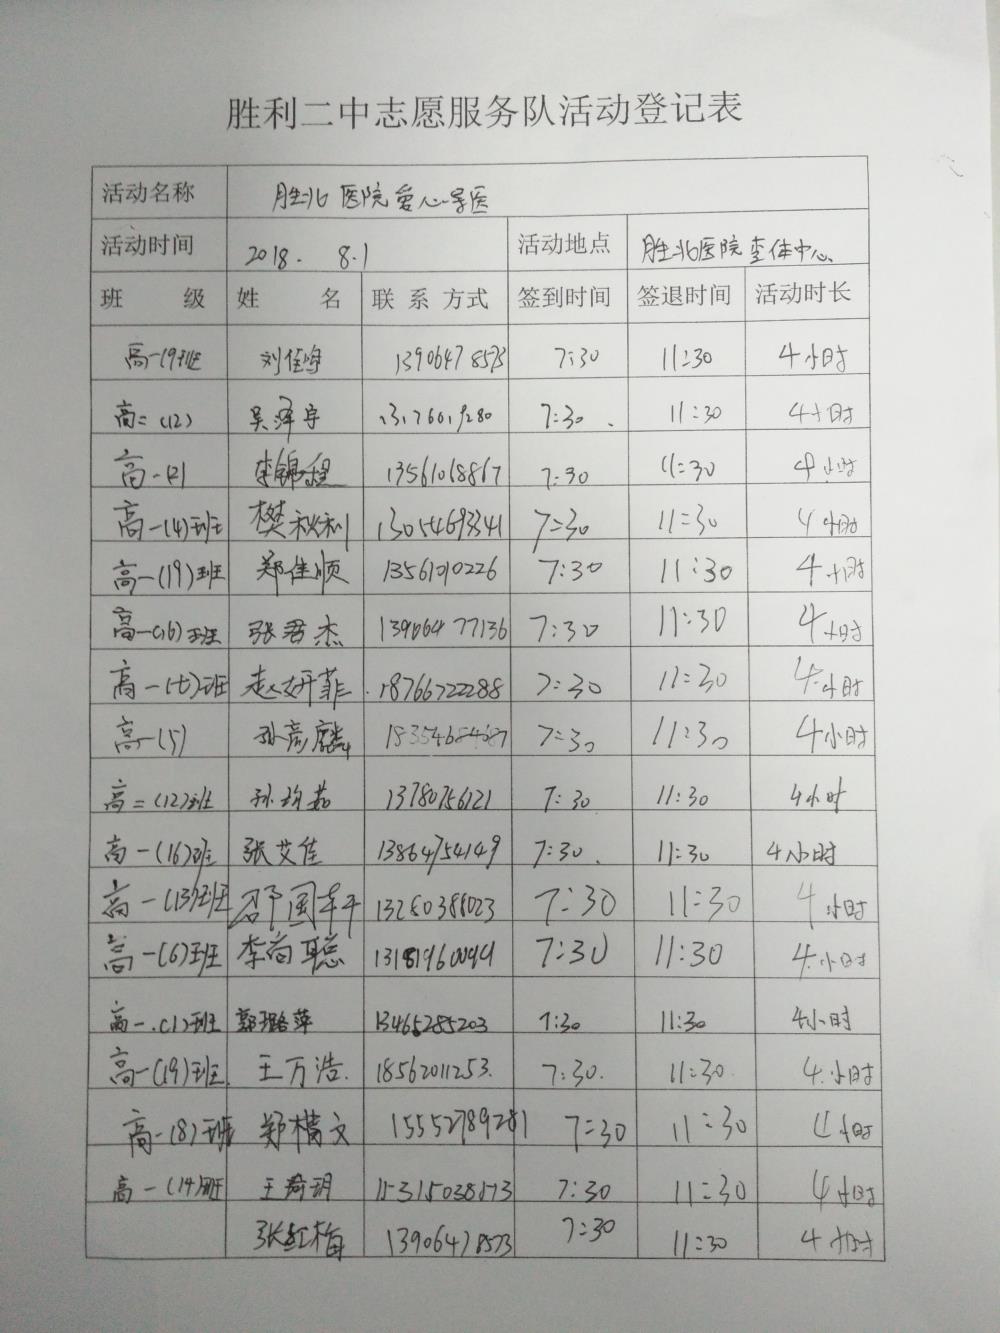 胜利二中志愿服务队活动登记表
活动名称 胜北医院爱心导医
活动时间 2018. 8.1 活动地点 胜北医院查体中心
班 级 姓 名 联 系 方式 签到时间 签退时间 活动时长
高一(9)班 刘佳峰 13906478573 7:30 11:30 4小时
高二(12) 吴泽宇 7:30 11:30 4小时
高一(2) 李锦程 13561068867 7:30 11:30 4小时
高一(4)班 樊秋利 13054693341 7:30 11:30 4小时
高一(19)班 郑佳顺 13561010226 7:30 11:30 4小时
高一(16)班 张君杰 13906477136 7:30 11:30 4小时
高一(七)班 赵妍菲 18766722288 7:30 11:30 4小时
高一(5) 孙彦麟 18354684687 7:30 11:30 4小时
高二(12)班 孙玓茹 13780756121 7:30 11:30 4小时
高一(16)班 张艾佳 13864754149 7:30 11:30 4小时
高一(13)班 邵国丰 13280388023 7:30 11:30 4小时
高一(6)班 李尚聪 7:30 11:30 4小时
高一(1)班 郭璐萍 13465285203 7:30 11:30 4小时
高一(19)班 王万浩 18562011253 7:30 11:30 4小时
高一(8)班 郑楷文 15552789281 7:30 11:30 4小时
高一(14)班 王荷玥 15315038573 7:30 11:30 4小时
张红梅 13906478573 7:30 11:30 4小时